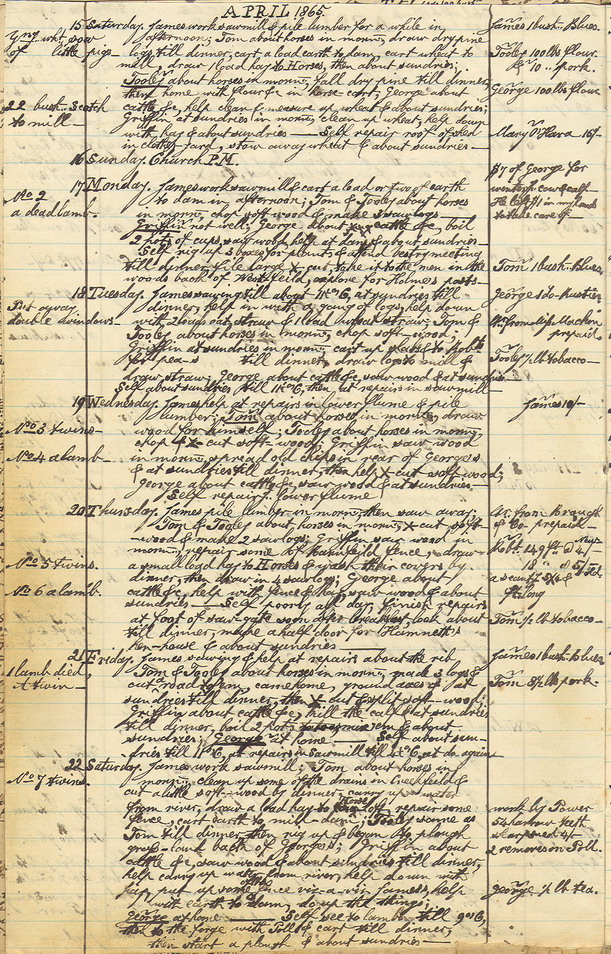 APRIL 1865.
15 Saturday. James work sawmill & pile lumber for a while in
afternoon; Tom about horses in morng, draw dry pine
logs till dinner, cart a load earth to dam, cart wheat to
mill, draw 1 load hay to Horses, then about sundries;
Tooley about horses in morng, fall dry pine till dinner,
then home with flour &c in horse-cart; George about
cattle &c, help clean & measure up wheat & about sundries;
Griffin at sundries in morng, clean up wheat, help down
with hay & about sundries — Self repair roof of shed
in clothes yard, stow away wheat & about sundries —
James 1 bush. Blues.
Tooley 100 lbs flour.
10 " pork.
George 100 lbs flour
Mary O'Hara 15/-
Yng. wht. sow
of little pigs
22 bush. Scotch
to mill —
16 Sunday. Church P.M.
17 Monday. James work sawmill & cart a load or two of earth
to dam in afternoon; Tom & Tooley about horses
in morng, chop soft wood & make 3 sawlogs —
Griffin not well; George about cattle &c, boil
2 pots of cups, saw wood, help at dam & about sundries —
Self rig up 3 boxes for plants & attend vestry meeting
till dinner, file large X cut, take it to the men in the
woods back of Westfield, explore for Holmes' posts —
$7 of George for
wintering cow & calf
He left $1 in my hands
to take care of —
Tom 1 bush. Blues
No 2
a dead lamb.
18 Tuesday. James sawing till about 11 o'C, at sundries till
dinner, help in with a gang of logs, help down
with 2 loads oat straw & 1 load wheat straw; Tom &
Tooley about horses in morng, chop soft wood —
Griffin at sundries in morng, cart up slabs to Robt.
till dinner, draw logs to mill &
draw straw; George about cattle &c, saw wood & at sundries
Self about sundries till 11 o'C, then at repairs in sawmill —
George 1 do. Rustics
prepaid
Tooley ½ lb tobacco —
Put away
double windows.
19 Wednesday. James help at repairs in lower flume & pile
lumber; Tom about horses in morng, draw
wood for himself; Tooley about horses in morng,
chop & X cut soft-wood; Griffin saw wood
in morng, spread old chips in rear of George's
& at sundries till dinner, then help X cut soft wood;
George about cattle &c, saw wood & at sundries —
Self repairg lower flume
James 10/-
No 3 twins —
No 4 a lamb
20 Thursday. James pile lumber in morng, then saw away;
Tom & Tooley about horses in morng, X cut soft-
wood & make 2 sawlogs; Griffin saw wood in
morng, repair some of Barnfield fence, draw
a small load hay to Horses & wash their covers by
dinner, then draw in 4 sawlogs; George about
cattle &c, help with fence & hay, saw wood & about
sundries — Self poorly all day, finish repairs
at foot of saw-gate soon after breakfast, look about
till dinner, make a half door for Hamnett's
hen-house & about sundries —
& Co prepaid —
Robt. 149 ft. @ 4/-
long
Tom ½ lb tobacco —
No 5 twins.
No 6 a lamb.
21 Friday. James sawing & help at repairs about the rib
Tom & Tooley about horses in morng, made 3 logs &
cut road to them, came home, ground axes & at
sundries till dinner, then X cut & split soft-wood;
Griffin about cattle &c, kill the calf & at sundries
till dinner, boil 2 pots & about
sundries; George at home — Self about sun-
dries till 11 o'C, at repairs in sawmill till o'C, at do. again
James 1 bush. Blues
Tom 8½ lbs pork.
1 lamb died
a twin —
22 Saturday. James work sawmill; Tom about horses in
morng, clean up some of the drains on Creekfield &
cut a little soft-wood by dinner, carry up water
from river, draw a load hay to Horse loft, repair some
fence, cart earth to mill-dam; Tooley same as
Tom till dinner, then rig up & began to plough
grass-land back of George's; Griffin about
cattle &c, saw wood & about sundries till dinner,
help carry up water from river, help down with
hay, put up some fence vis-a-vis James's, help
with earth to dam, do up the things;
George at home — Self see to lambs till 9 o'C,
then to the forge with Poll & cart till dinner,
then start a plough & about sundries —
work by Power
54 harrow teeth
sharpened 4/-
2 removes on Poll.
George ½ lb tea.
No 7 twins.